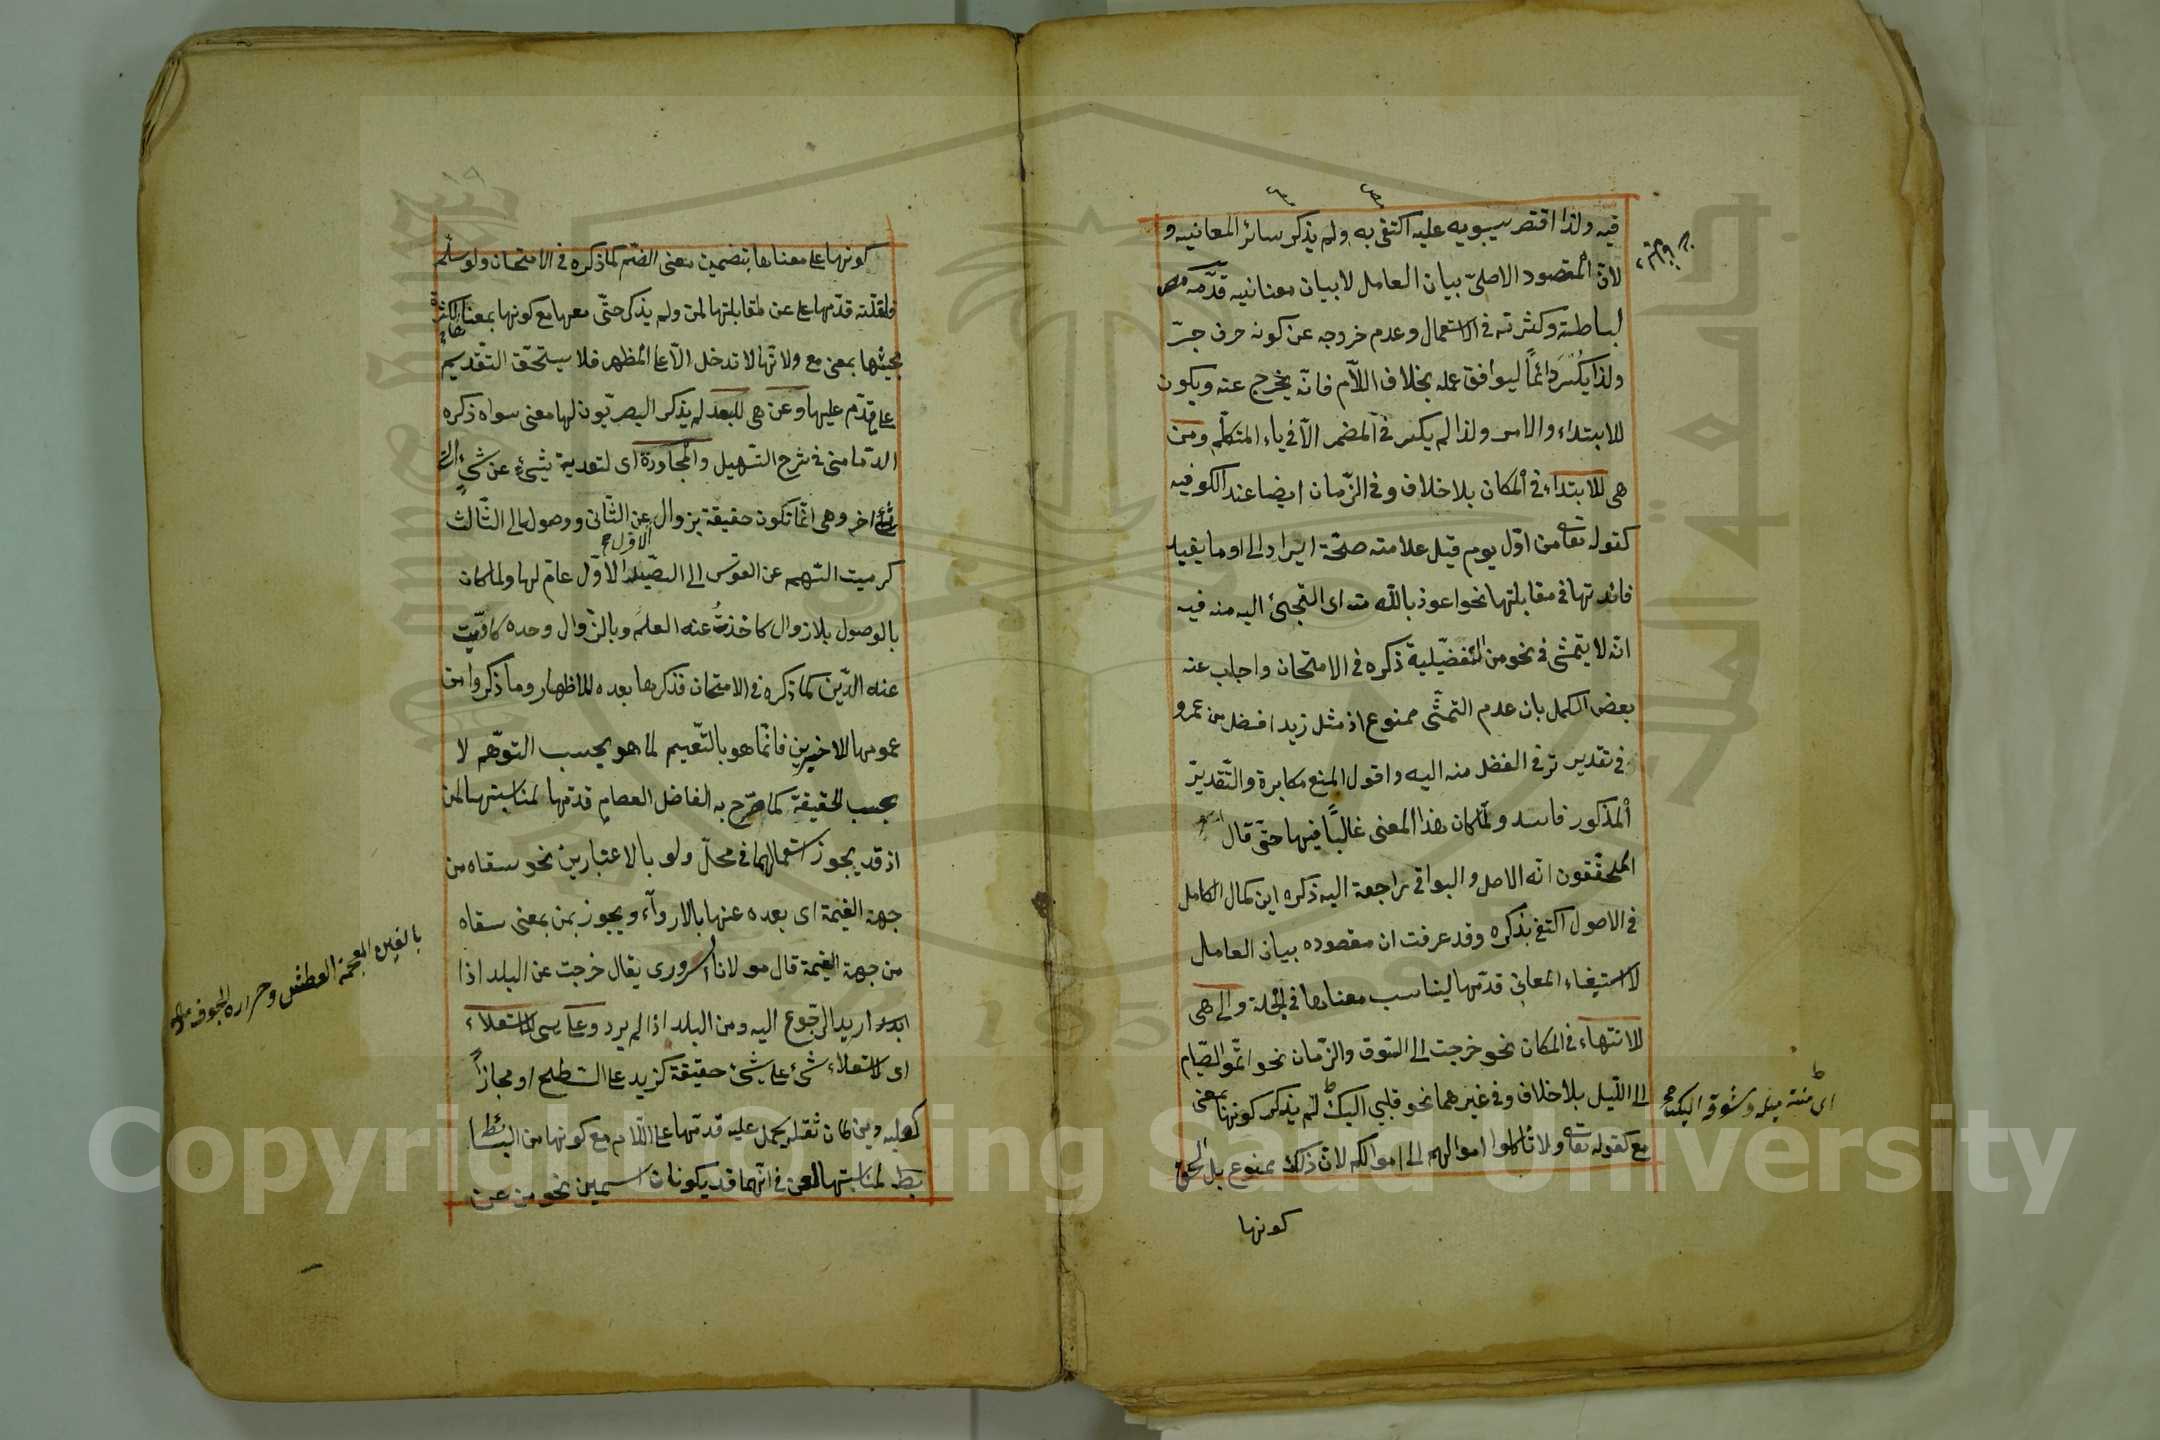 فيه ولذا اقتصر سيبويه عليه اكتفى به ولم يذكر سائر المعانيه و
لان المقصود الاصلىّ بيان العامل لا بيان معنانيه قدّمه
لبساطته وكثرته فى الاستعمال وعدم خروجه عن كونه حرف جرّ
ولذا يكسر دائماً ليوافق عمله بخلاف اللّام فانّه يخرج عنه ويكون
للابتداء والامر ولذا لم يكسر فى المضمر الّا فى ياء المتكلّم ومن
هى للابتداء فى المكان بلا خلاف وفى الزّمان ايضا عند الكوفيه
كقوله تعا من اوّل يوم قيل علامته صحّة ايراد الى او ما يفيد
فائدتها فى مقابلتها نحو اعوذ بالله منه اى التجئ اليه منه فيه
انه لا يتمشى فى نحو من التفضيلية ذكره فى الامتحان واجاب عنه
بعض الكمل بان عدم التمشّى ممنوع اذ مثل زيد افضل من عمرو
فى تقدير ترقى الفضل منه اليه واقول المنع مكابرة والتّقدير
المذكور فاسد ولمّا كان هذا المعنى غالبًا فيها حتّى قال
المحقّقون انه الاصل والبواقى راجعة اليه ذكره ابن كمال الكامل
فى الاصول اكتفى بذكره وقد عرفت ان مقصوده بيان العامل
لا استيفاء المعانى قدّمها ليناسب معناها فى الجملة والى هى
للانتهاء فى المكان نحو خرجت الى السّوق والزّمان نحو اتمّوا الصّيام
الى اللّيل بلا خلاف وفى غيرهما نحو قلبى اليك لم يذكر كونها بمعنى
مع كقوله تعا ولا تاكلوا اموالهم الى اموالكم لانّ ذلك ممنوع بل الحق
كونها
اى منته ميله وشوقه اليك
كونها على معناها بتضمين معنى الضم كما ذكره فى الامتحان ولو سلّم
فلقلّته قدّمها على عن لمقابلتها لمن ولم يذكر حتّى معها مع كونها بمعناها لكثرة
مجيئها بمعنى مع ولانّها لا تدخل الّا على المظهر فلا يستحقّ التّقديم
على ما قدّم عليها وعن هى للبعد لم يذكر البصريّون لها معنى سواه ذكره
الدّمامنى فى شرح التسهيل والمجاوزة اى لتعدية شىء عن شىء الى
شىء اخر وهى انّما تكون حقيقة بزوال عن الثّانى ووصول الى الثّالث
كرميت السّهم عن القوس الى الصّيد الاوّل عامّ لها ولما كان
بالوصول بلا زوال كاخذتُ عنه العلم وبالزّوال وحده كادّيت
عنه الدّين كما ذكره فى الامتحان فذكرها بعده للاظهار وما ذكروا من
عمومها للاخيرين فانّما هو بالتّعميم لما هو بحسب التوهّم لا
بحسب الحقيقة كما صرّح به الفاضل العصام قدّمها لمناسبتها لمن
اذ قد يجوز استعمالهما فى محلّ ولو بالاعتبارين نحو سقاه من
جهة الغيمة اى بعده عنها بالارواء ويجوز بمن بمعنى سقاه
من جهة الغيمة قال مولانا السرورى يقال خرجت عن البلد اذا
اريد الرّجوع اليه ومن البلد اذا لم يرد وعلى هى للاستعلاء
اى لاستعلاء شئ على شئ حقيقة كزيد على السّطح او مجازاً
كعليه دين كان ثقله يحمل عليه قدّمها على اللّام مع كونها من البسائط
لمناسبتها لعن فى انّهما قد يكونان اسمين نحو من عن
الاوّل
بالغين المعجمة العطش وحرارة الجوف
Copyright © King Saud University
1957